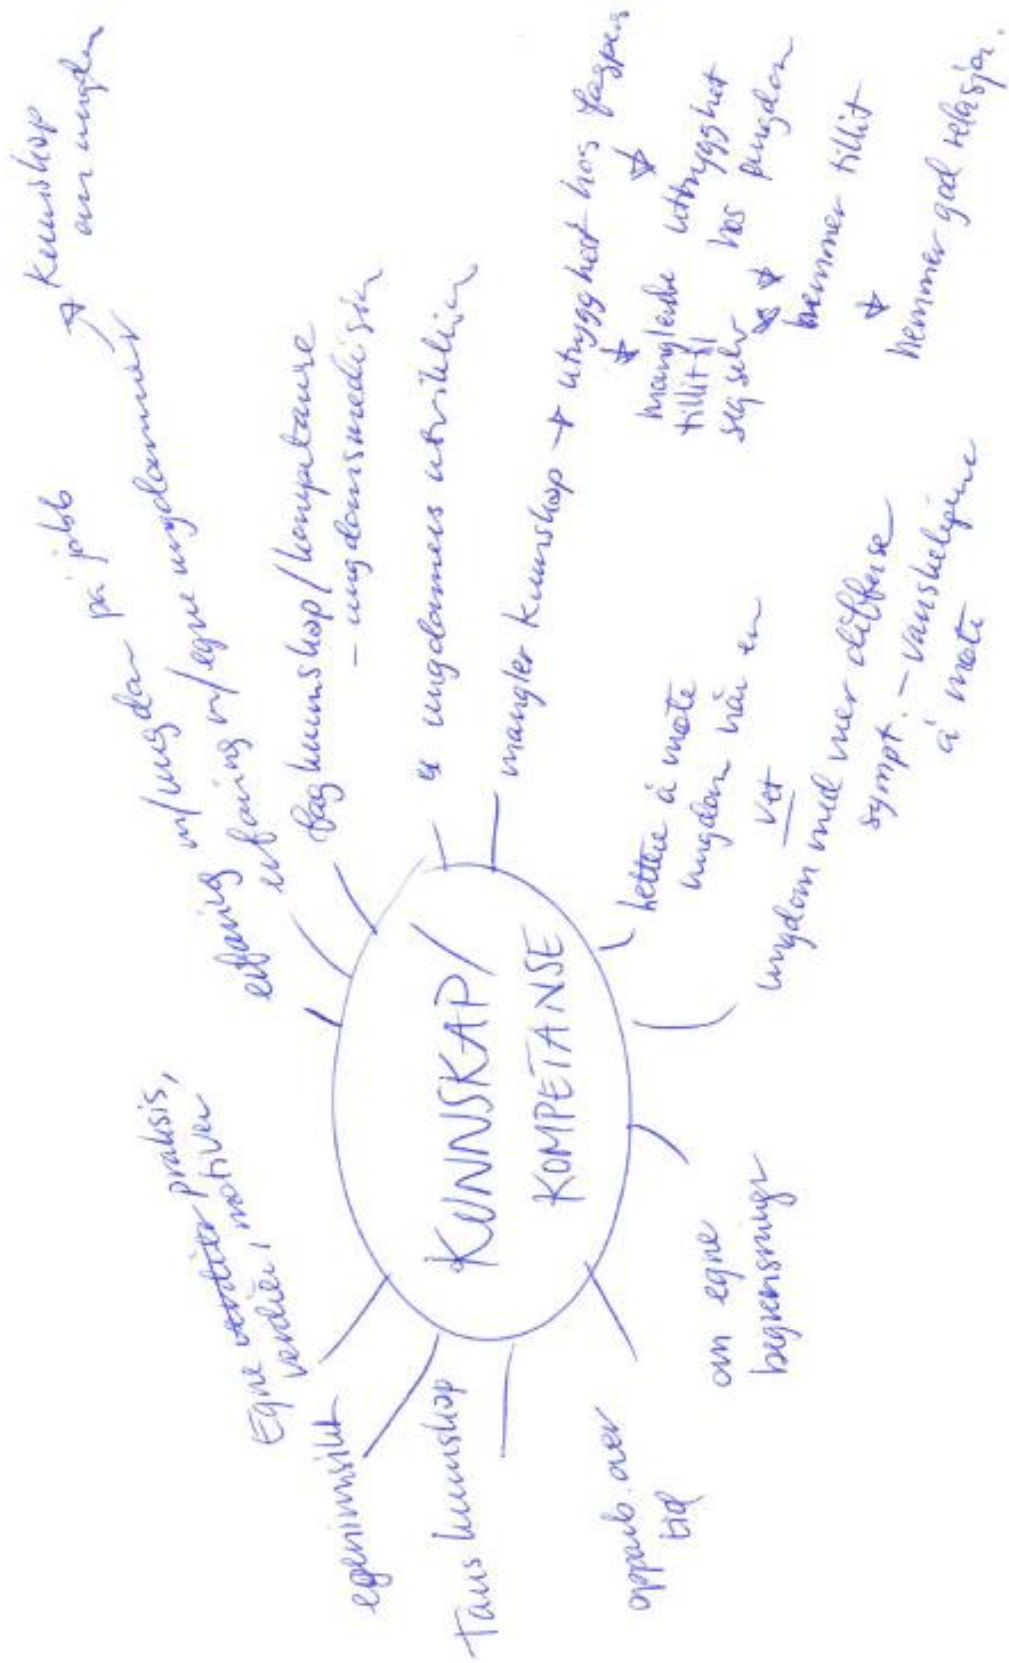 KUNNSKAP/
KOMPETANSE
Egne verdier praksis,
verdier, motiver
egeninnsikt
Taus kunnskap
opparb. over
tid
om egne
begrensninger
erfaring m/ungdom på jobb
erfaring m/egne ungdommer
→ Kunnskap
om ungdom
fagkunnskap/kompetanse
- ungdomsmedisin
ungdommens utvikling
mangler kunnskap → utrygghet hos fagpers
manglende
tillit til
seg selv
utrygghet
hos
ungdom
hemmer tillit
hemmer god relasjon.
lettere å møte
ungdom når en
vet
ungdom med mer diffuse
sympt. - vanskeligere
å møte